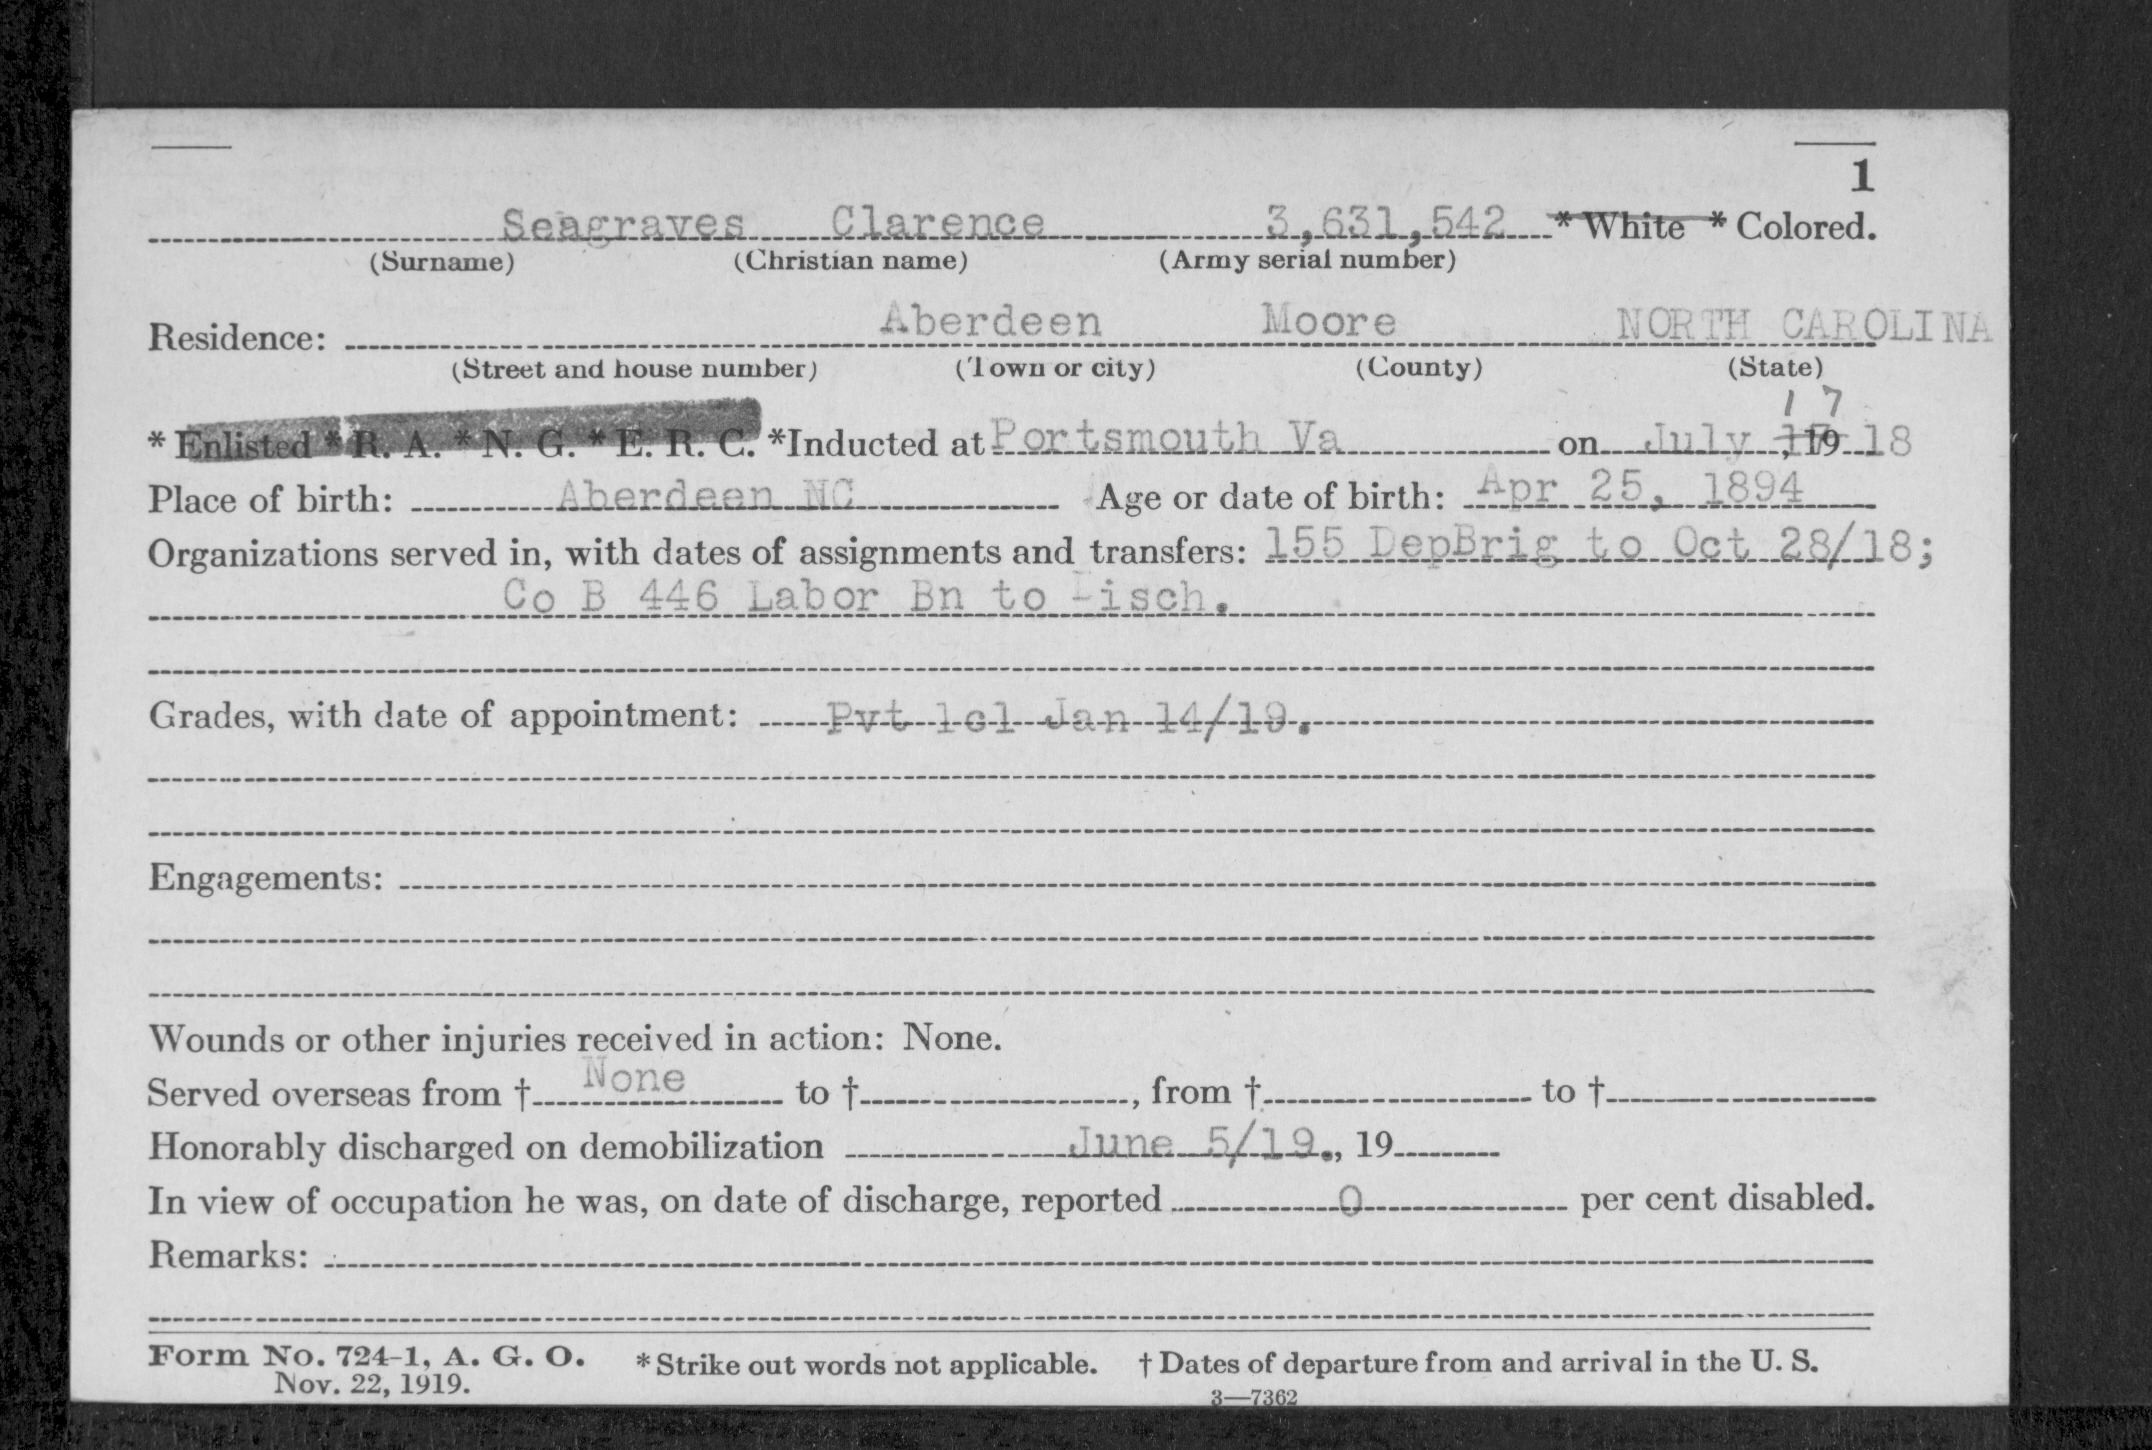 1
Seagraves Clarence 3,631,542 * White * Colored.
(Surname) (Christian name) (Army serial number)
Residence: Aberdeen Moore NORTH CAROLINA
(Street and house number) (Town or city) (County) (State)
17
* Enlisted * R. A. * N. G. * E. R. C. *Inducted at Portsmouth Va on July 17, 1918
Place of birth: Aberdeen NC Age or date of birth: Apr 25, 1894
Organizations served in, with dates of assignments and transfers: 155 DepBrig to Oct 28/18;
Co B 446 Labor Bn to Disch.
Grades, with date of appointment: Pvt 1cl Jan 14/19.
Engagements:
Wounds or other injuries received in action: None.
Served overseas from † None to †, from † to †
Honorably discharged on demobilization June 5/19., 19
In view of occupation he was, on date of discharge, reported 0 per cent disabled.
Remarks:
Form No. 724-1, A. G. O. * Strike out words not applicable. † Dates of departure from and arrival in the U. S.
Nov. 22, 1919.
3—7362